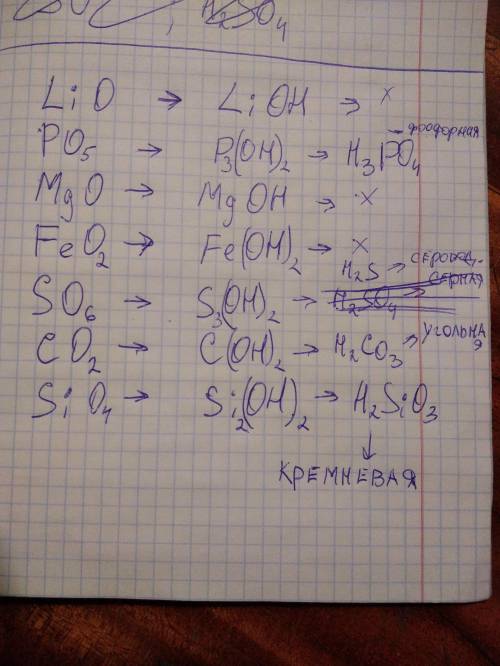 H₂SO₄
LiO → LiOH → x
PO₅ → P₃(OH)₂ → H₃PO₄ – фосфорная
MgO → MgOH → x
FeO₂ → Fe(OH)₂ → x
H₂S → серовод.
SO₆ → S₃(OH)₂ → H₂SO₄ → серная
CO₂ → C(OH)₂ → H₂CO₃ → угольна
я
SiO₄ → Si₂(OH)₂ → H₂SiO₃
↓
КРЕМНЕВАЯ